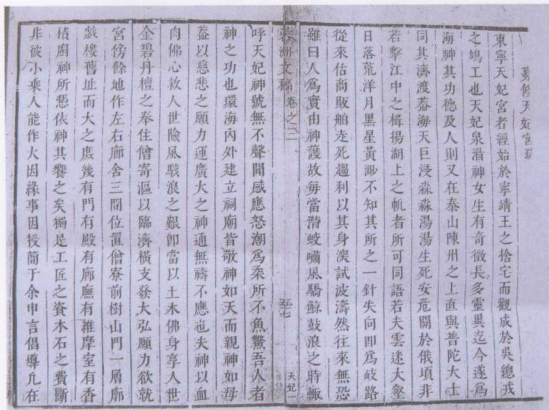 募修天妃宮疏
東寧天妃宮者經始於寧靖王之捨宅而觀成於吳總戎
之鳩工也天妃泉湄神女生有奇徵長多靈異迄今遂為
海神其功德及人則又在泰山陳州之上直與普陀大士
同其濟渡葢海天巨浸淼淼湯湯生死安危關於俄頃非
若擊江中之楫揚湖上之帆者所可同語若夫雲迷大壑
日落荒洋月黑星黃渺不知其所之一針失向即為岐路
從來估商販舶走死趨利以其身深試波濤然往來無恐
雖曰人為實由神護故每當潛蛟嘯風驕鯨鼓浪之時輒
蓉洲文稿 卷之二 天妃一
呼天妃神號無不聲聞感應怒潮為柔所不魚鱉吾人者
神之功也環海內外建立祠廟皆敬神如天而親神如母
葢以慈悲之願力運廣大之神通無禱不應也夫神以血
肉佛心救人世險風駭浪之艱即當以土木佛身享人世
金碧丹檀之奉住僧寄漚以臨濟橫支發大弘願力欲就
宮傍餘地作左右廊舍三間位置僧寮前樹山門一層廓
戲樓舊址而大之庶幾有門有殿有廊廡有維摩室有香
積廚神所憑依神其饗之矣獨是工匠之資木石之費斷
非彼小乘人能作大因緣事因授簡于余申言倡導凡在